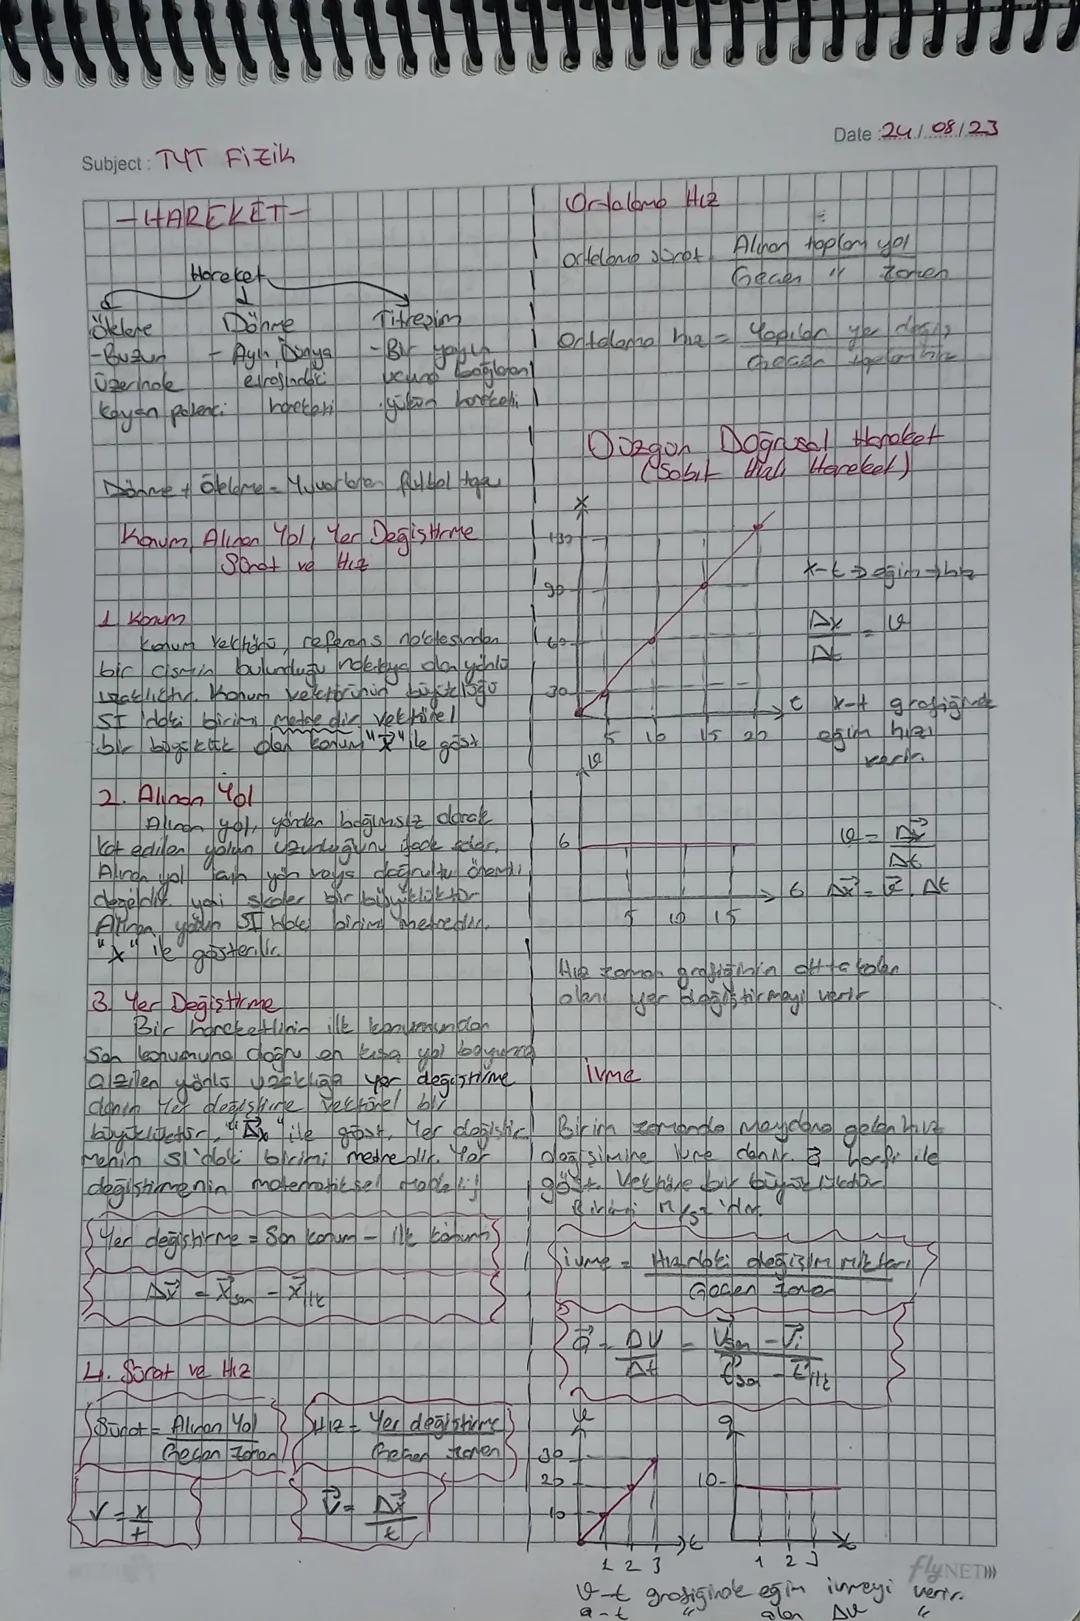 Date : 24/08/23
Subject : TYT Fizik
-HAREKET-
Hareket
Öteleme
Dönme
Titreşim
-Buzun
üzerinde
kayan
- Ayın Dünya
etrafındaki
hareketi
-Bir yayın
ucuna bağlanan
yükün hareketi
Dönme + Öteleme = Yuvarlanan futbol topu
Konum, Alınan Yol, Yer Değiştirme
Sürat ve Hız
1. Konum
Konum vektörü, referans noktasından
bir cismin bulunduğu noktaya olan yönlü
uzaklıktır. Konum vektörünün büyüklüğü
SI'daki birimi metredir. Vektörel
bir büyüklük olan konum "x⃗" ile göst.
2. Alınan Yol
Alınan yol, yönden bağımsız olarak
kat edilen yolun uzunluğunu ifade eder.
Alınan yol için yön veya doğrultu önemli
değildir. yani skaler bir büyüklüktür
Alınan yolun SI'daki birimi metredir.
"x" ile gösterilir.
3. Yer Değiştirme
Bir hareketlinin ilk konumundan
Son konumuna doğru en kısa yol boyunca
çizilen yönlü uzaklığa yer değiştirme
denir. Yer değiştirme vektörel bir
büyüklüktür. "Δx⃗" ile göst. Yer değiştir
menin SI'daki birimi metredir. Yer
değiştirmenin matematiksel modeli;
Yer değiştirme = Son konum - ilk konum
Δx⃗ = x⃗son - x⃗ilk
4. Sürat ve Hız
Sürat = Alınan Yol / Geçen zaman
Hız = Yer değiştirme / Geçen zaman
v = x/t
v⃗ = Δx⃗/t
Ortalama Hız
ortalama sürat Alınan toplam yol / Geçen " zaman
Ortalama hız = Yapılan yer değiş. / Geçen toplam
Düzgün Doğrusal Hareket
(Sabit Hızlı Hareket)
x
130
90
60
30
5 10 15 20
t
x-t → eğim → hız
Δx/Δt = v
x-t grafiğinde
eğim hızı
verir.
v
6
5 10 15
t
v = Δx⃗/Δt
Δx⃗ = v⃗ . Δt
Hız zaman grafiğinin altta kalan
alanı yer değiştirmeyi verir
İvme
Birim zamanda meydana gelen hız
değişimine ivme denir. a⃗ harfi ile
göst. Vektörel bir büyüklüktür
Birimi m/s² 'dir.
İvme = Hızdaki değişim miktarı / Geçen zaman
a⃗ = Δv/Δt = v⃗son - v⃗i / t⃗son - t⃗ilk
v
30
20
10
1 2 3
t
a
10
1 2 3
flyNET
v-t grafiğinde eğim ivmeyi verir.
a-t " alan Δv "